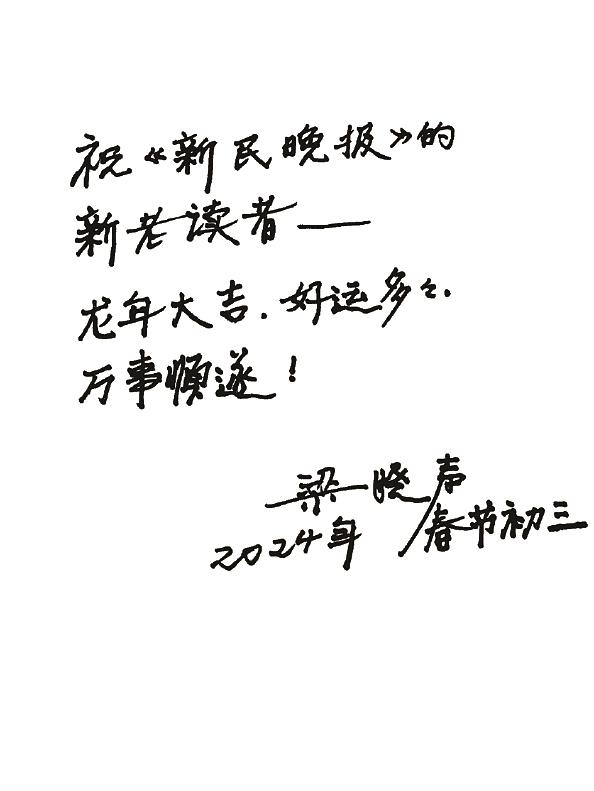 祝《新民晚报》的
新老读者——
龙年大吉.好运多々.
万事顺遂!
梁晓声
2024年 春节初三